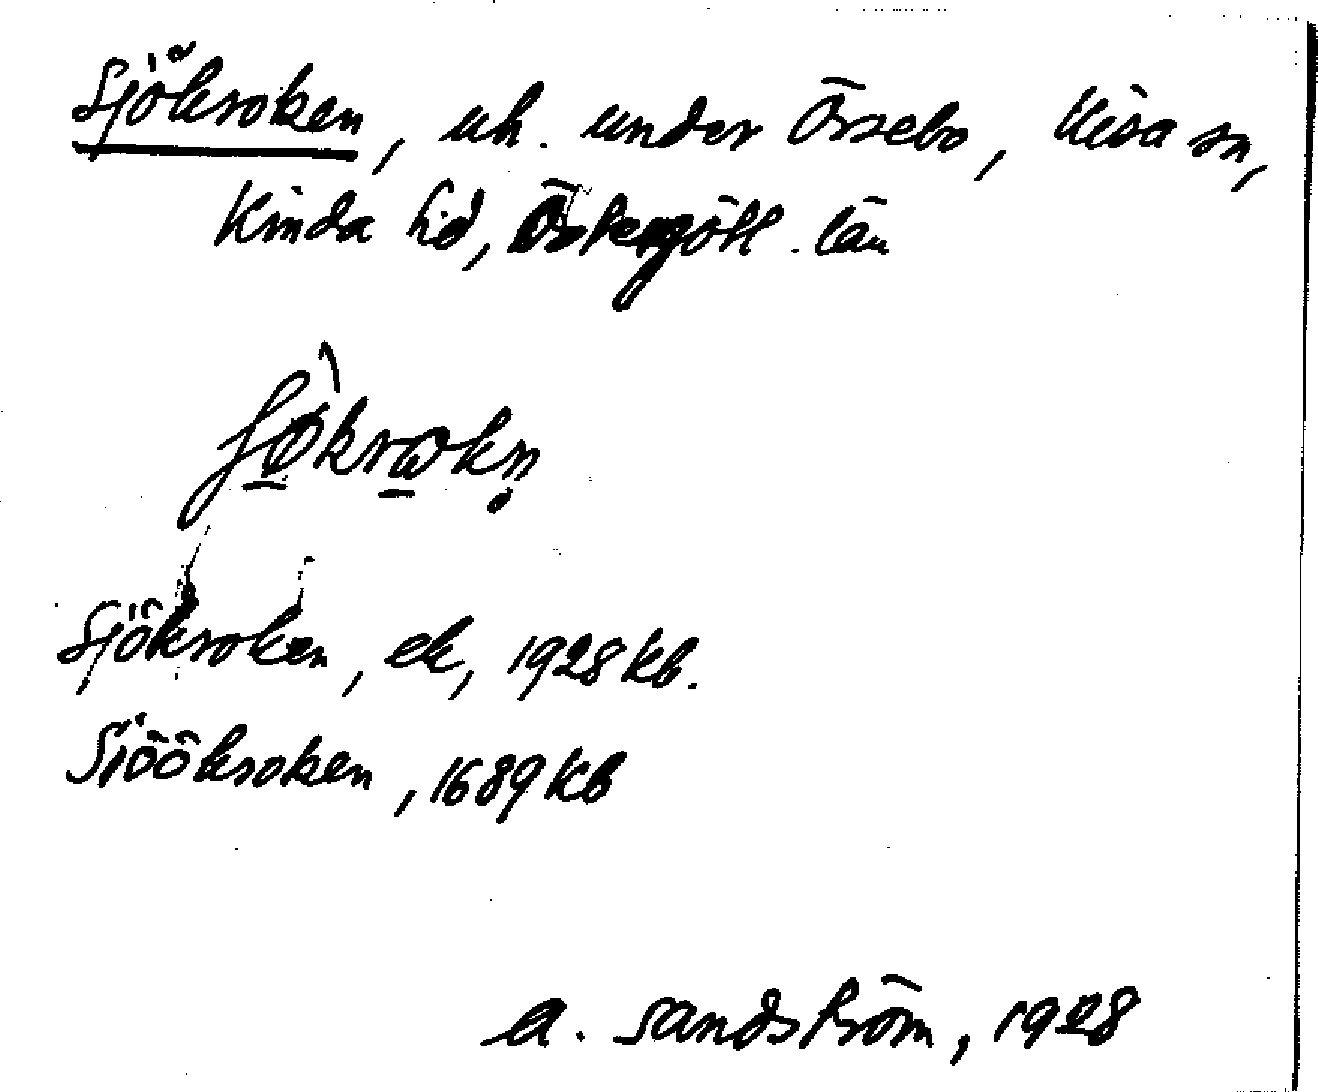 Sjökroken, uh. under Örsebo, Kisa sn,
Kinda hd, Östergötl. län
Sjökroken, ek, 1928 Kb.
Siöökroken, 1689 Kb
A. Sandström, 1928